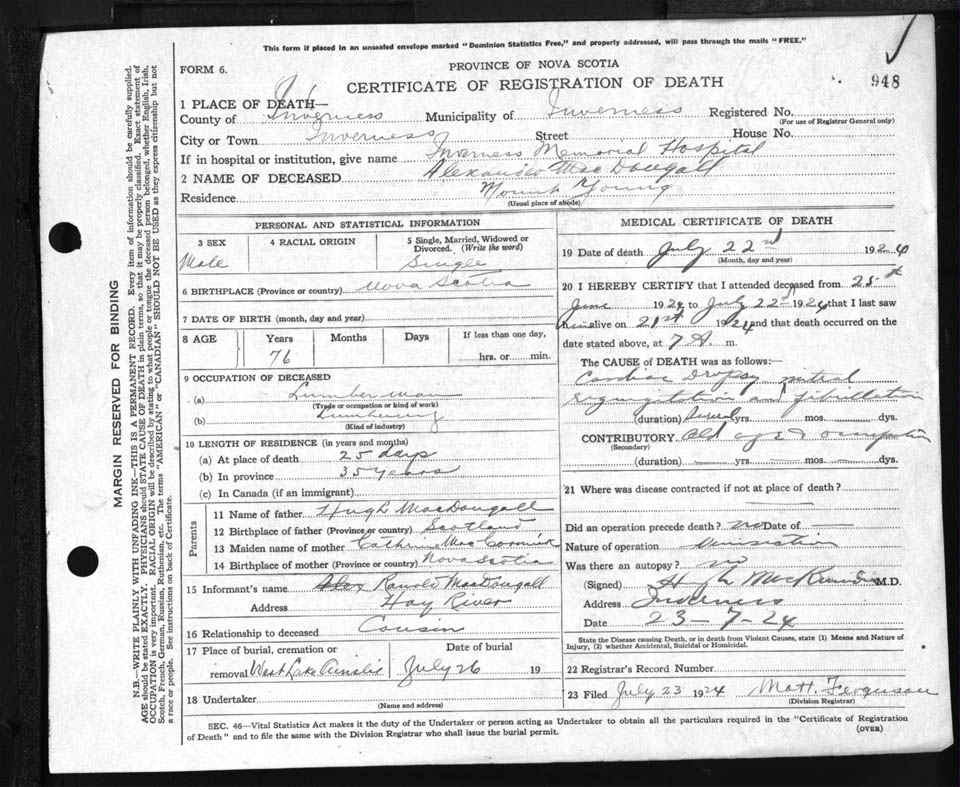 This form if placed in an unsealed envelope marked "Dominion Statistics Free," and properly addressed, will pass through the mails "FREE."
FORM 6.
PROVINCE OF NOVA SCOTIA
948
CERTIFICATE OF REGISTRATION OF DEATH
1 PLACE OF DEATH—
County of Inverness Municipality of Inverness Registered No.
(For use of Registrar General only)
City or Town Inverness Street House No.
If in hospital or institution, give name Inverness Memorial Hospital
2 NAME OF DECEASED Alexander MacDougall
Residence Mount Young
(Usual place of abode)
PERSONAL AND STATISTICAL INFORMATION
3 SEX 4 RACIAL ORIGIN 5 Single, Married, Widowed or Divorced. (Write the word)
Male Single
6 BIRTHPLACE (Province or country) Nova Scotia
7 DATE OF BIRTH (month, day and year)
8 AGE Years Months Days If less than one day,
76 hrs. or min.
9 OCCUPATION OF DECEASED
(a) Lumberman
(Trade or occupation or kind of work)
(b) Lumbering
(Kind of industry)
10 LENGTH OF RESIDENCE (in years and months)
(a) At place of death 25 days
(b) In province 35 years
(c) In Canada (if an immigrant)
Parents
11 Name of father Hugh MacDougall
12 Birthplace of father (Province or country) Scotland
13 Maiden name of mother Catherine MacCormick
14 Birthplace of mother (Province or country) Nova Scotia
15 Informant's name Alex Ranold MacDougall
Address Hay River
16 Relationship to deceased Cousin
17 Place of burial, cremation or removal Date of burial
West Lake Ainslie July 26 19
18 Undertaker
(Name and address)
MEDICAL CERTIFICATE OF DEATH
19 Date of death July 22nd 1924
(Month, day and year)
20 I HEREBY CERTIFY that I attended deceased from 25th
June 1924 to July 22nd 1924 that I last saw
him alive on 21st 1924 and that death occurred on
date stated above, at 7 A. m.
The CAUSE of DEATH was as follows:—
Cardiac Dropsy mitral
regurgitation and fibrillation
(duration) Several yrs. mos. dys.
CONTRIBUTORY Old age & occupation
(Secondary)
(duration) yrs. mos. dys.
21 Where was disease contracted if not at place of death?
Did an operation precede death? no Date of
Nature of operation
Was there an autopsy? no
(Signed) M.D.
Address Inverness
Date 23-7-24
State the Disease causing Death, or in death from Violent Causes, state (1) Means and Nature of
Injury, (2) whether Accidental, Suicidal or Homicidal.
22 Registrar's Record Number
23 Filed July 23 1924 Matt. Ferguson
(Division Registrar)
SEC. 46—Vital Statistics Act makes it the duty of the Undertaker or person acting as Undertaker to obtain all the particulars required in the "Certificate of Registration
of Death" and to file the same with the Division Registrar who shall issue the burial permit.
(OVER)
MARGIN RESERVED FOR BINDING
N.B.—WRITE PLAINLY WITH UNFADING INK—THIS IS A PERMANENT RECORD. Every item of information should be carefully supplied.
AGE should be stated EXACTLY. PHYSICIANS should STATE CAUSE OF DEATH in plain terms, so that it may be properly classified. Exact statement of
OCCUPATION is very important. RACIAL ORIGIN will be described by stating to what people or tongue the deceased person belonged, whether English, Irish,
Scotch, French, German, Russian, Ruthenian, etc. The terms "AMERICAN" or "CANADIAN" SHOULD NOT BE USED as they express citizenship but not
a race or people. See instructions on back of Certificate.